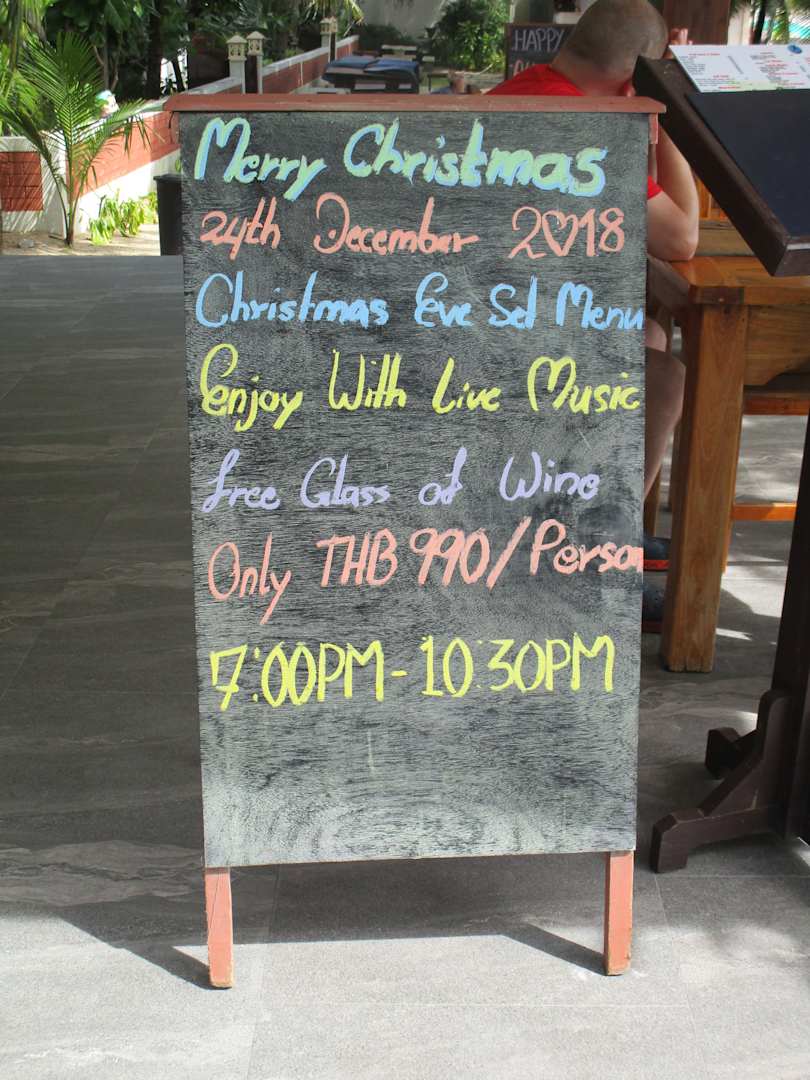 HAPPY
Merry Christmas
24th December 2018
Christmas Eve Set Menu
Enjoy With Live Music
free Glass of Wine
Only THB 990/Person
7:00PM - 10:30PM